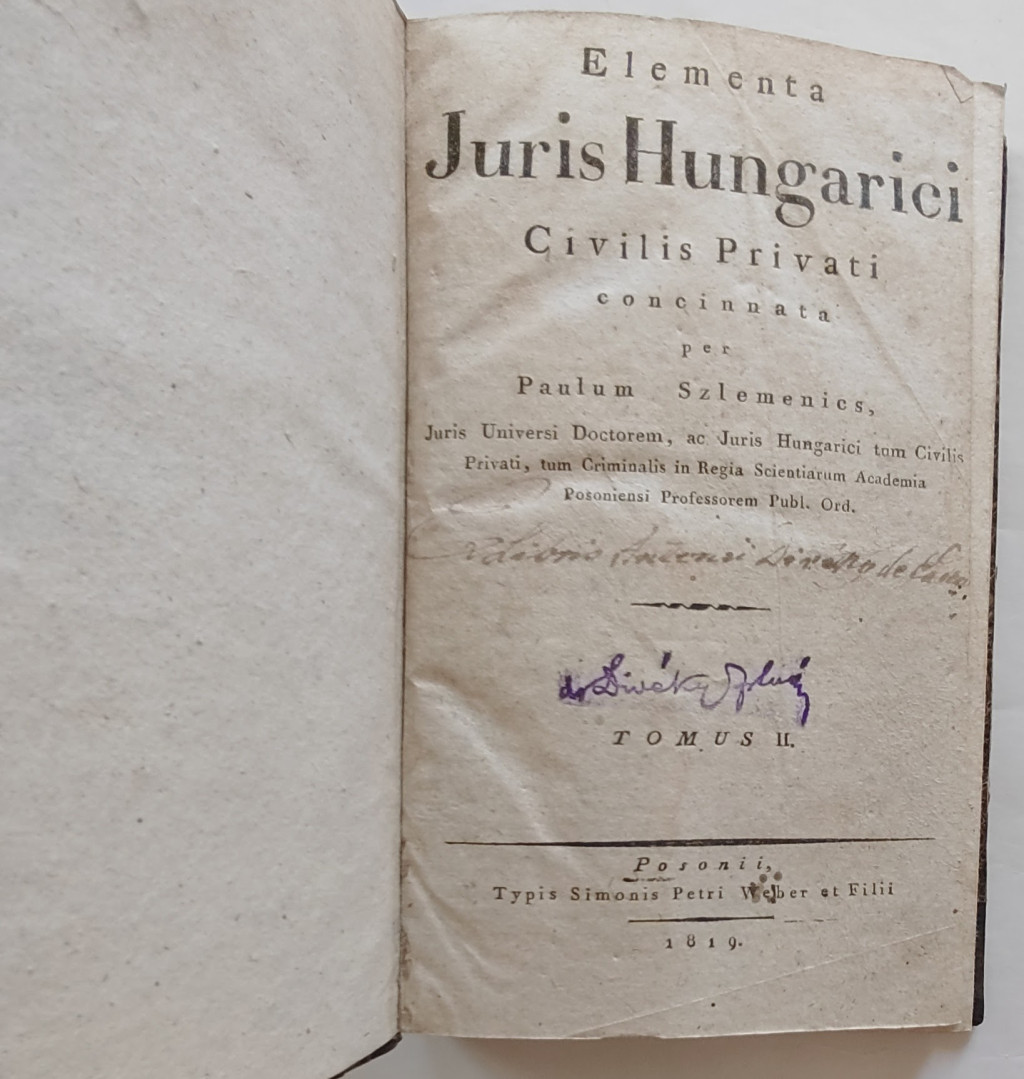 Elementa
Juris Hungarici
Civilis Privati
concinnata
per
Paulum Szlemenics,
Juris Universi Doctorem, ac Juris Hungarici tum Civilis
Privati, tum Criminalis in Regia Scientiarum Academia
Posoniensi Professorem Publ. Ord.
Ex libris Antonii Diveky de
dr Divéky
TOMUS II.
Posonii,
Typis Simonis Petri Weber et Filii
1819.